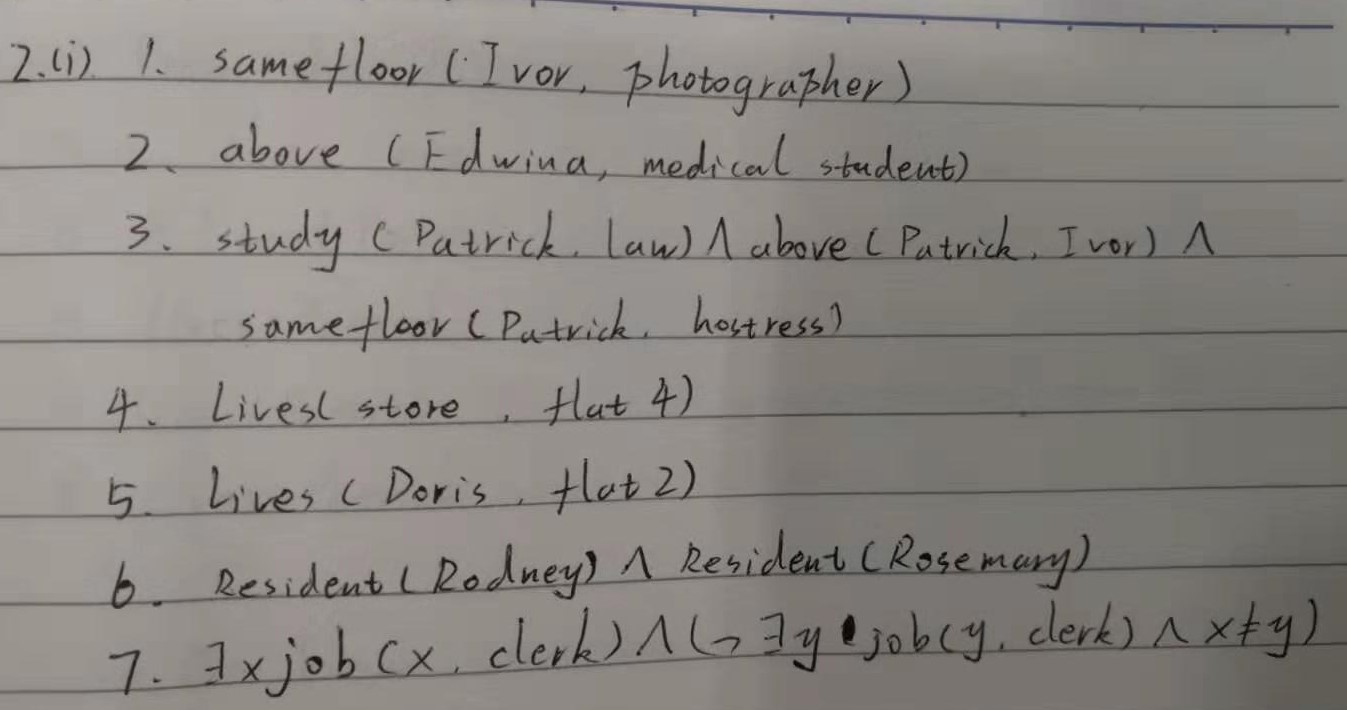 2.(i) 1. samefloor (Ivor, photographer)
2. above (Edwina, medical student)
3. study (Patrick, law) ∧ above (Patrick, Ivor) ∧
samefloor (Patrick, hostress)
4. Lives( store, flat 4)
5. Lives (Doris, flat 2)
6. Resident (Rodney) ∧ Resident (Rosemary)
7. ∃x job (x, clerk) ∧ (¬∃y job(y, clerk) ∧ x≠y)